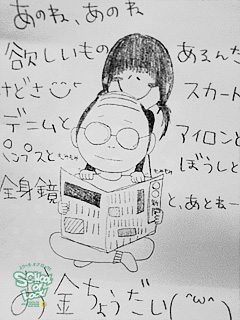 あのね、あのね
欲しいもの あるんだ
けどさ スカート
デニムと アイロンと
パンプスと ぼうしと
全身鏡 と、あとねー
お金ちょうだい(^ω^)
SCHOOL OF LOCK!